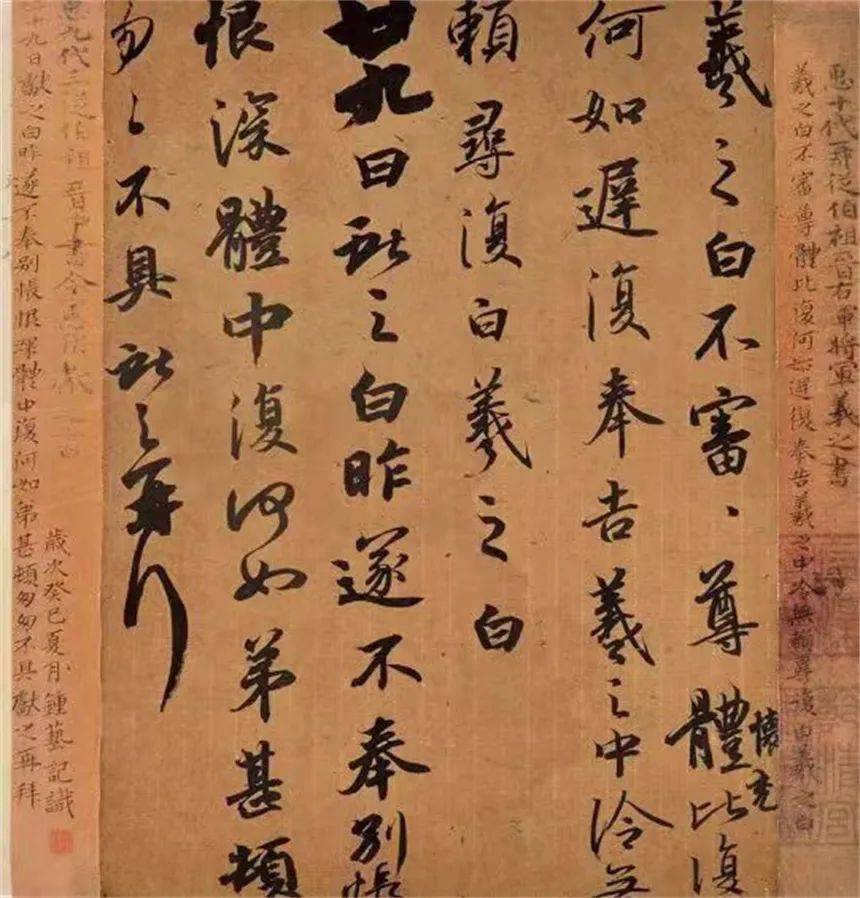 臣十代再從伯祖晉右軍將軍羲之書
羲之白不審尊體比復何如遲復奉告羲之中冷無賴尋復白羲之白
羲之白不審、尊體比復
懷充
何如遲復奉告羲之中冷無
賴尋復白羲之白
廿九日獻之白昨遂不奉別悵
恨深體中復何如弟甚頓
匆〻不具獻之再拜
臣九代三從伯祖晉中書令
二十九日獻之白昨遂不奉別悵恨深體中復何如弟甚頓匆匆不具獻之再拜
歲次癸巳夏月鍾藝記識